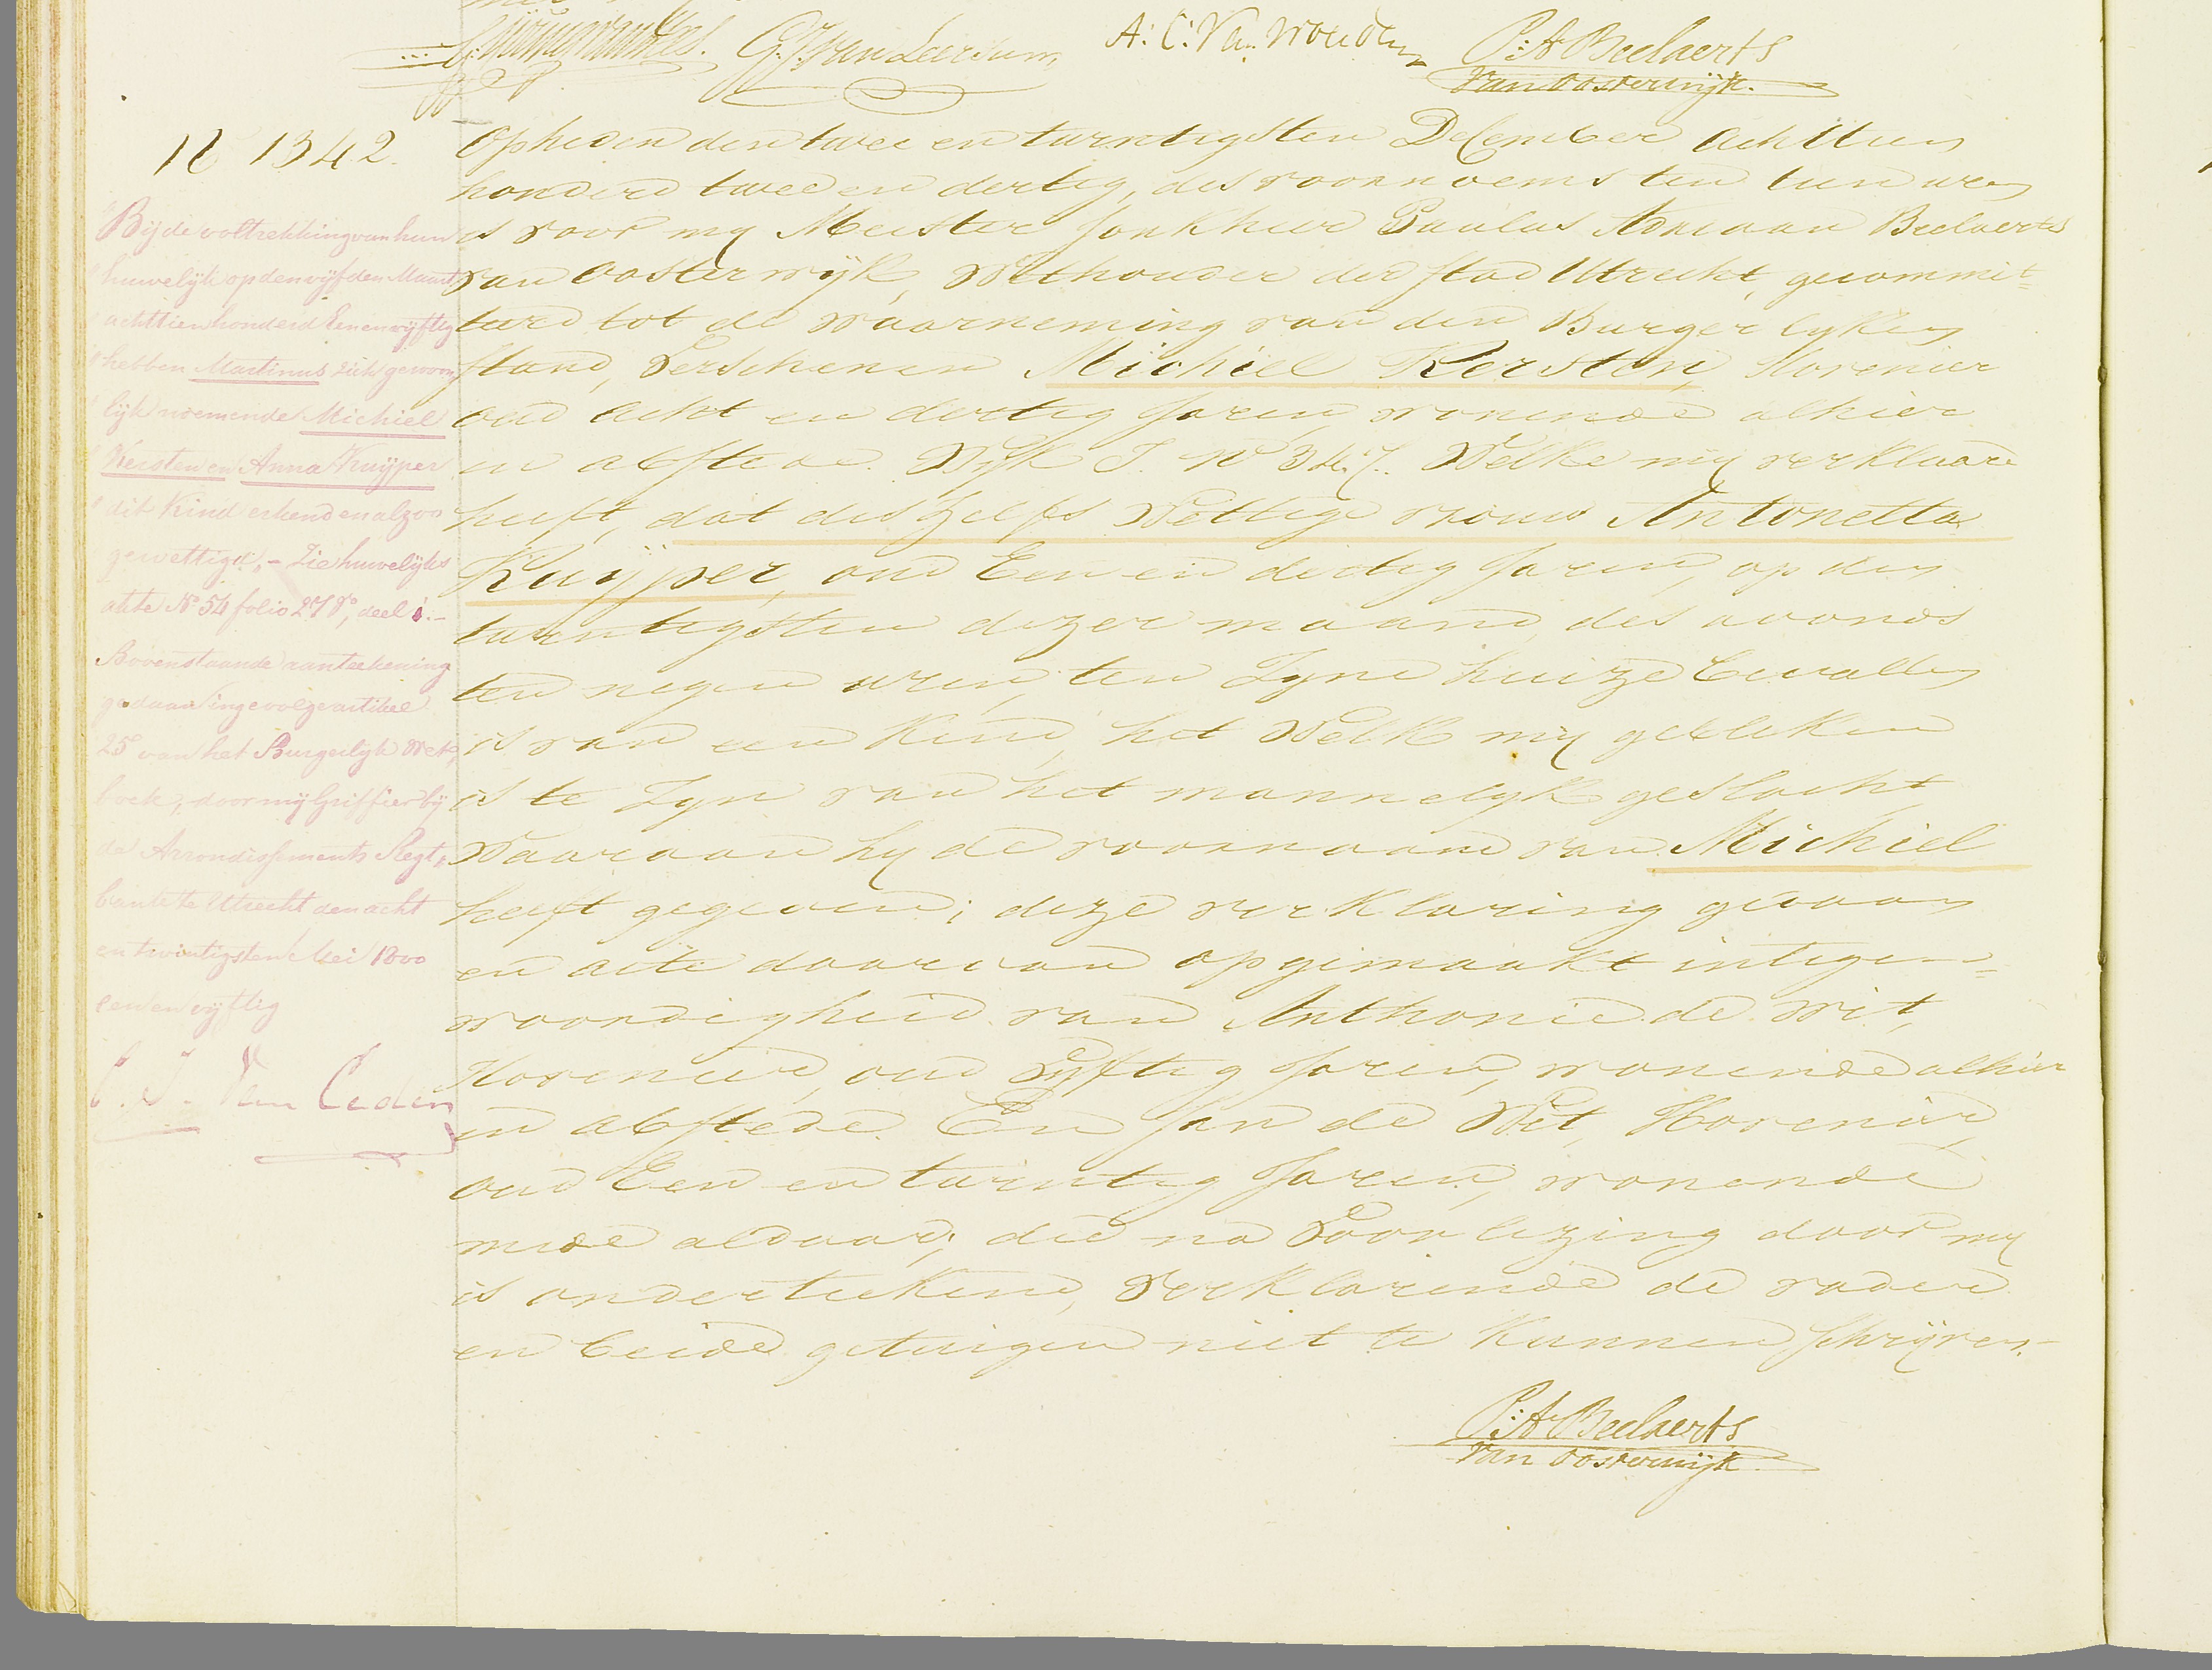 G. J. van Leersum
A: C: Van Wouden
P: A Beelaerts
van Oosterwijk.
N 1342.
Op heden den twee en twintigsten December Achttien
honderd twee en dertig, des voornoems ten tien uren
is voor my Meester Jonkheer Paulus Adriaan Beelaerts
van Oosterwijk, Wethouder der stad Utrecht, gecommit=
teerd tot de waarneming van den Burgerlyken
stand, Verschenen Michiel Kersten, Hovenier
oud acht en dertig Jaren, wonende alhier
in Abstede Wyk I. No 347. Welke my verklaard
heeft, dat deszelfs Wettige vrouw Antonetta
Kuijper, oud Een en dertig Jaren, op den
twintigsten dezer maand, des avonds
ten negen uren, ten zyne huize bevallen
is van een Kind, het Welk my gebleken
is te zyn van het mannelyk geslacht,
Waaraan hy de voornaam van Michiel
heeft gegeven; deze verklaring gedaan
en acte daarvan opgemaakt in tegen=
woordigheid van Anthonie de Wit,
Hovenier, oud Vyftig Jaren, wonende alhier
in Abstede En Jan de Wit, Hovenier,
oud Een en twintig Jaren, wonende
mede aldaar; die na Voorlezing door my
is onderteekend, Verklarende de vader
en beide getuigen niet te kunnen schrijven.
P: A Beelaerts
van Oosterwijk.
Bij de voltrekking van hun
huwelijk op den vijfden Maart
achttien honderd Een en vijftig
hebben Martinus zich gewoon
lijk noemende Michiel
Kersten en Anna Kuijper
dit Kind erkend en alzoo
gewettigd. - Zie huwelijks
akte No 54 folio 27 vo, deel 1.-
Bovenstaande aanteekening
gedaan ingevolge artikel
25 van het Burgerlijk Wet,
boek, door mij Griffier bij
de Arrondissements Regt,
bank te Utrecht den acht
en twintigsten Mei 1800
een en vijftig